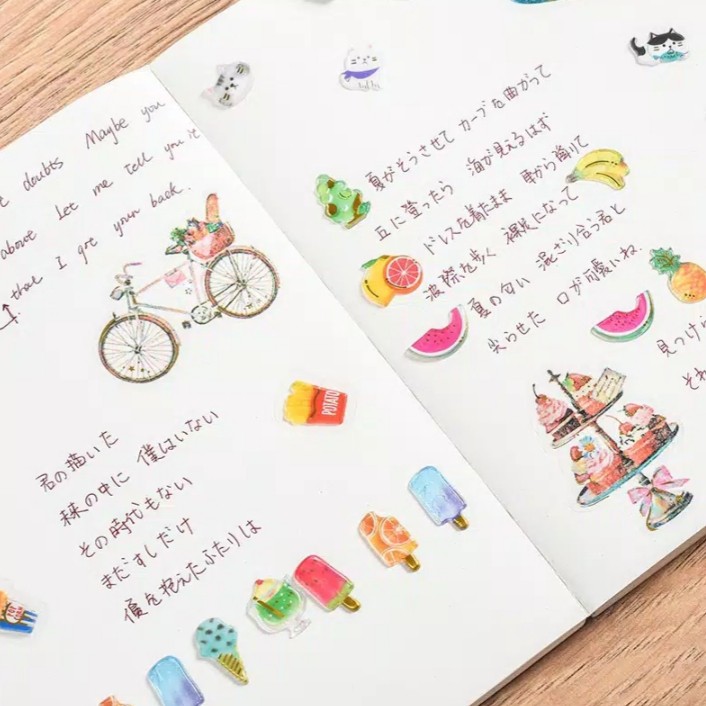 doubts Maybe you
about Let me tell you
that I got your back.
君の描いた
未の中に 僕はいない
その時代もない
まだすしだけ
優を抱えたふたりは
POTATO
夏がそうさせて カーブを曲がって
丘に登ったら 海が見えるはず
ドレスを着たまま 車から降りて
波際を歩く 裸足になって
夏の匂い 混ざり合う君と
尖らせた 口が可愛いね.
見つけ
それ